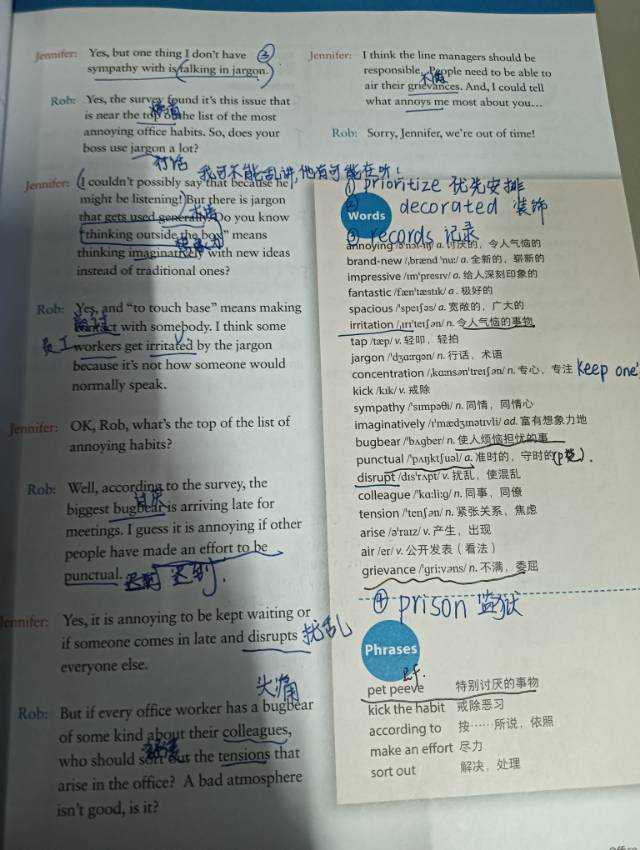 Jennifer: Yes, but one thing I don't have ③
sympathy with is talking in jargon.
Rob: Yes, the survey found it's this issue that
is near the top of the list of the most
annoying office habits. So, does your
boss use jargon a lot?
行话
我可不能乱讲,他有可能在听!
Jennifer: (I couldn't possibly say that because he
might be listening!) But there is jargon
that gets used generally. Do you know
"thinking outside the box" means
thinking imaginatively with new ideas
instead of traditional ones?
Rob: Yes, and "to touch base" means making
contact with somebody. I think some
员工 workers get irritated by the jargon
because it's not how someone would
normally speak.
Jennifer: OK, Rob, what's the top of the list of
annoying habits?
Rob: Well, according to the survey, the
biggest bugbear is arriving late for
meetings. I guess it is annoying if other
people have made an effort to be
punctual. 迟到.
Jennifer: Yes, it is annoying to be kept waiting or
if someone comes in late and disrupts 扰乱
everyone else.
头痛
Rob: But if every office worker has a bugbear
of some kind about their colleagues,
who should sort out the tensions that
arise in the office? A bad atmosphere
isn't good, is it?
Jennifer: I think the line managers should be
responsible. People need to be able to
不满
air their grievances. And, I could tell
what annoys me most about you…
Rob: Sorry, Jennifer, we're out of time!
① prioritize 优先安排
② decorated 装饰
Words
③ records 记录
annoying /ə'nɔɪ-ɪŋ/ a. 讨厌的，令人气恼的
brand-new /ˌbrænd 'nuː/ a. 全新的，崭新的
impressive /ɪm'presɪv/ a. 给人深刻印象的
fantastic /fæn'tæstɪk/ a. 极好的
spacious /'speɪʃəs/ a. 宽敞的，广大的
irritation /ˌɪrɪ'teɪʃən/ n. 令人气恼的事物
tap /tæp/ v. 轻叩，轻拍
jargon /'dʒɑːrgən/ n. 行话，术语
concentration /ˌkɑːnsən'treɪʃən/ n. 专心，专注 keep one'
kick /kɪk/ v. 戒除
sympathy /'sɪmpəθi/ n. 同情，同情心
imaginatively /ɪ'mædʒɪnətɪvli/ ad. 富有想象力地
bugbear /'bʌgber/ n. 使人烦恼担忧的事
punctual /'pʌŋktʃuəl/ a. 准时的，守时的
disrupt /dɪs'rʌpt/ v. 扰乱，使混乱
colleague /'kɑːliːg/ n. 同事，同僚
tension /'tenʃən/ n. 紧张关系，焦虑
arise /ə'raɪz/ v. 产生，出现
air /er/ v. 公开发表（看法）
grievance /'griːvəns/ n. 不满，委屈
④ prison 监狱
Phrases
pet peeve 特别讨厌的事物
kick the habit 戒除恶习
according to 按……所说，依照
make an effort 尽力
sort out 解决，处理